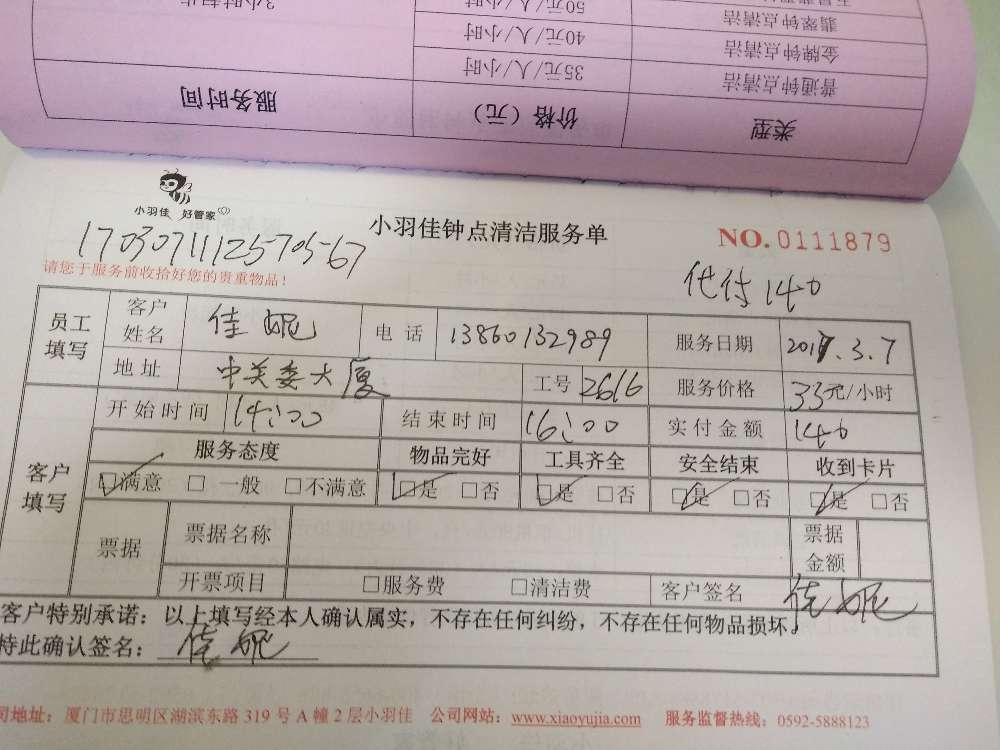 3小时起步
50元/人/小时
翡翠钟点清洁
40元/人/小时
金牌钟点清洁
35元/人/小时
普通钟点清洁
服务时间
价格（元）
类型
小羽佳 好管家
小羽佳钟点清洁服务单
NO.0111879
请您于服务前收拾好您的贵重物品！
代付140
员工填写 客户姓名 佳妮 电话 13860132989 服务日期 2017.3.7
地址 中关委大厦 工号 2616 服务价格 33元/小时
开始时间 14:00 结束时间 16:00 实付金额 140
客户填写 服务态度 物品完好 工具齐全 安全结束 收到卡片
☑满意 □一般 □不满意 ☑是 □否 ☑是 □否 ☑是 □否 ☑是 □否
票据 票据名称 票据金额
开票项目 □服务费 □清洁费 客户签名 佳妮
客户特别承诺：以上填写经本人确认属实，不存在任何纠纷，不存在任何物品损坏。
特此确认签名：佳妮
司地址：厦门市思明区湖滨东路 319 号 A 幢 2 层小羽佳 公司网站：www.xiaoyujia.com 服务监督热线：0592-5888123